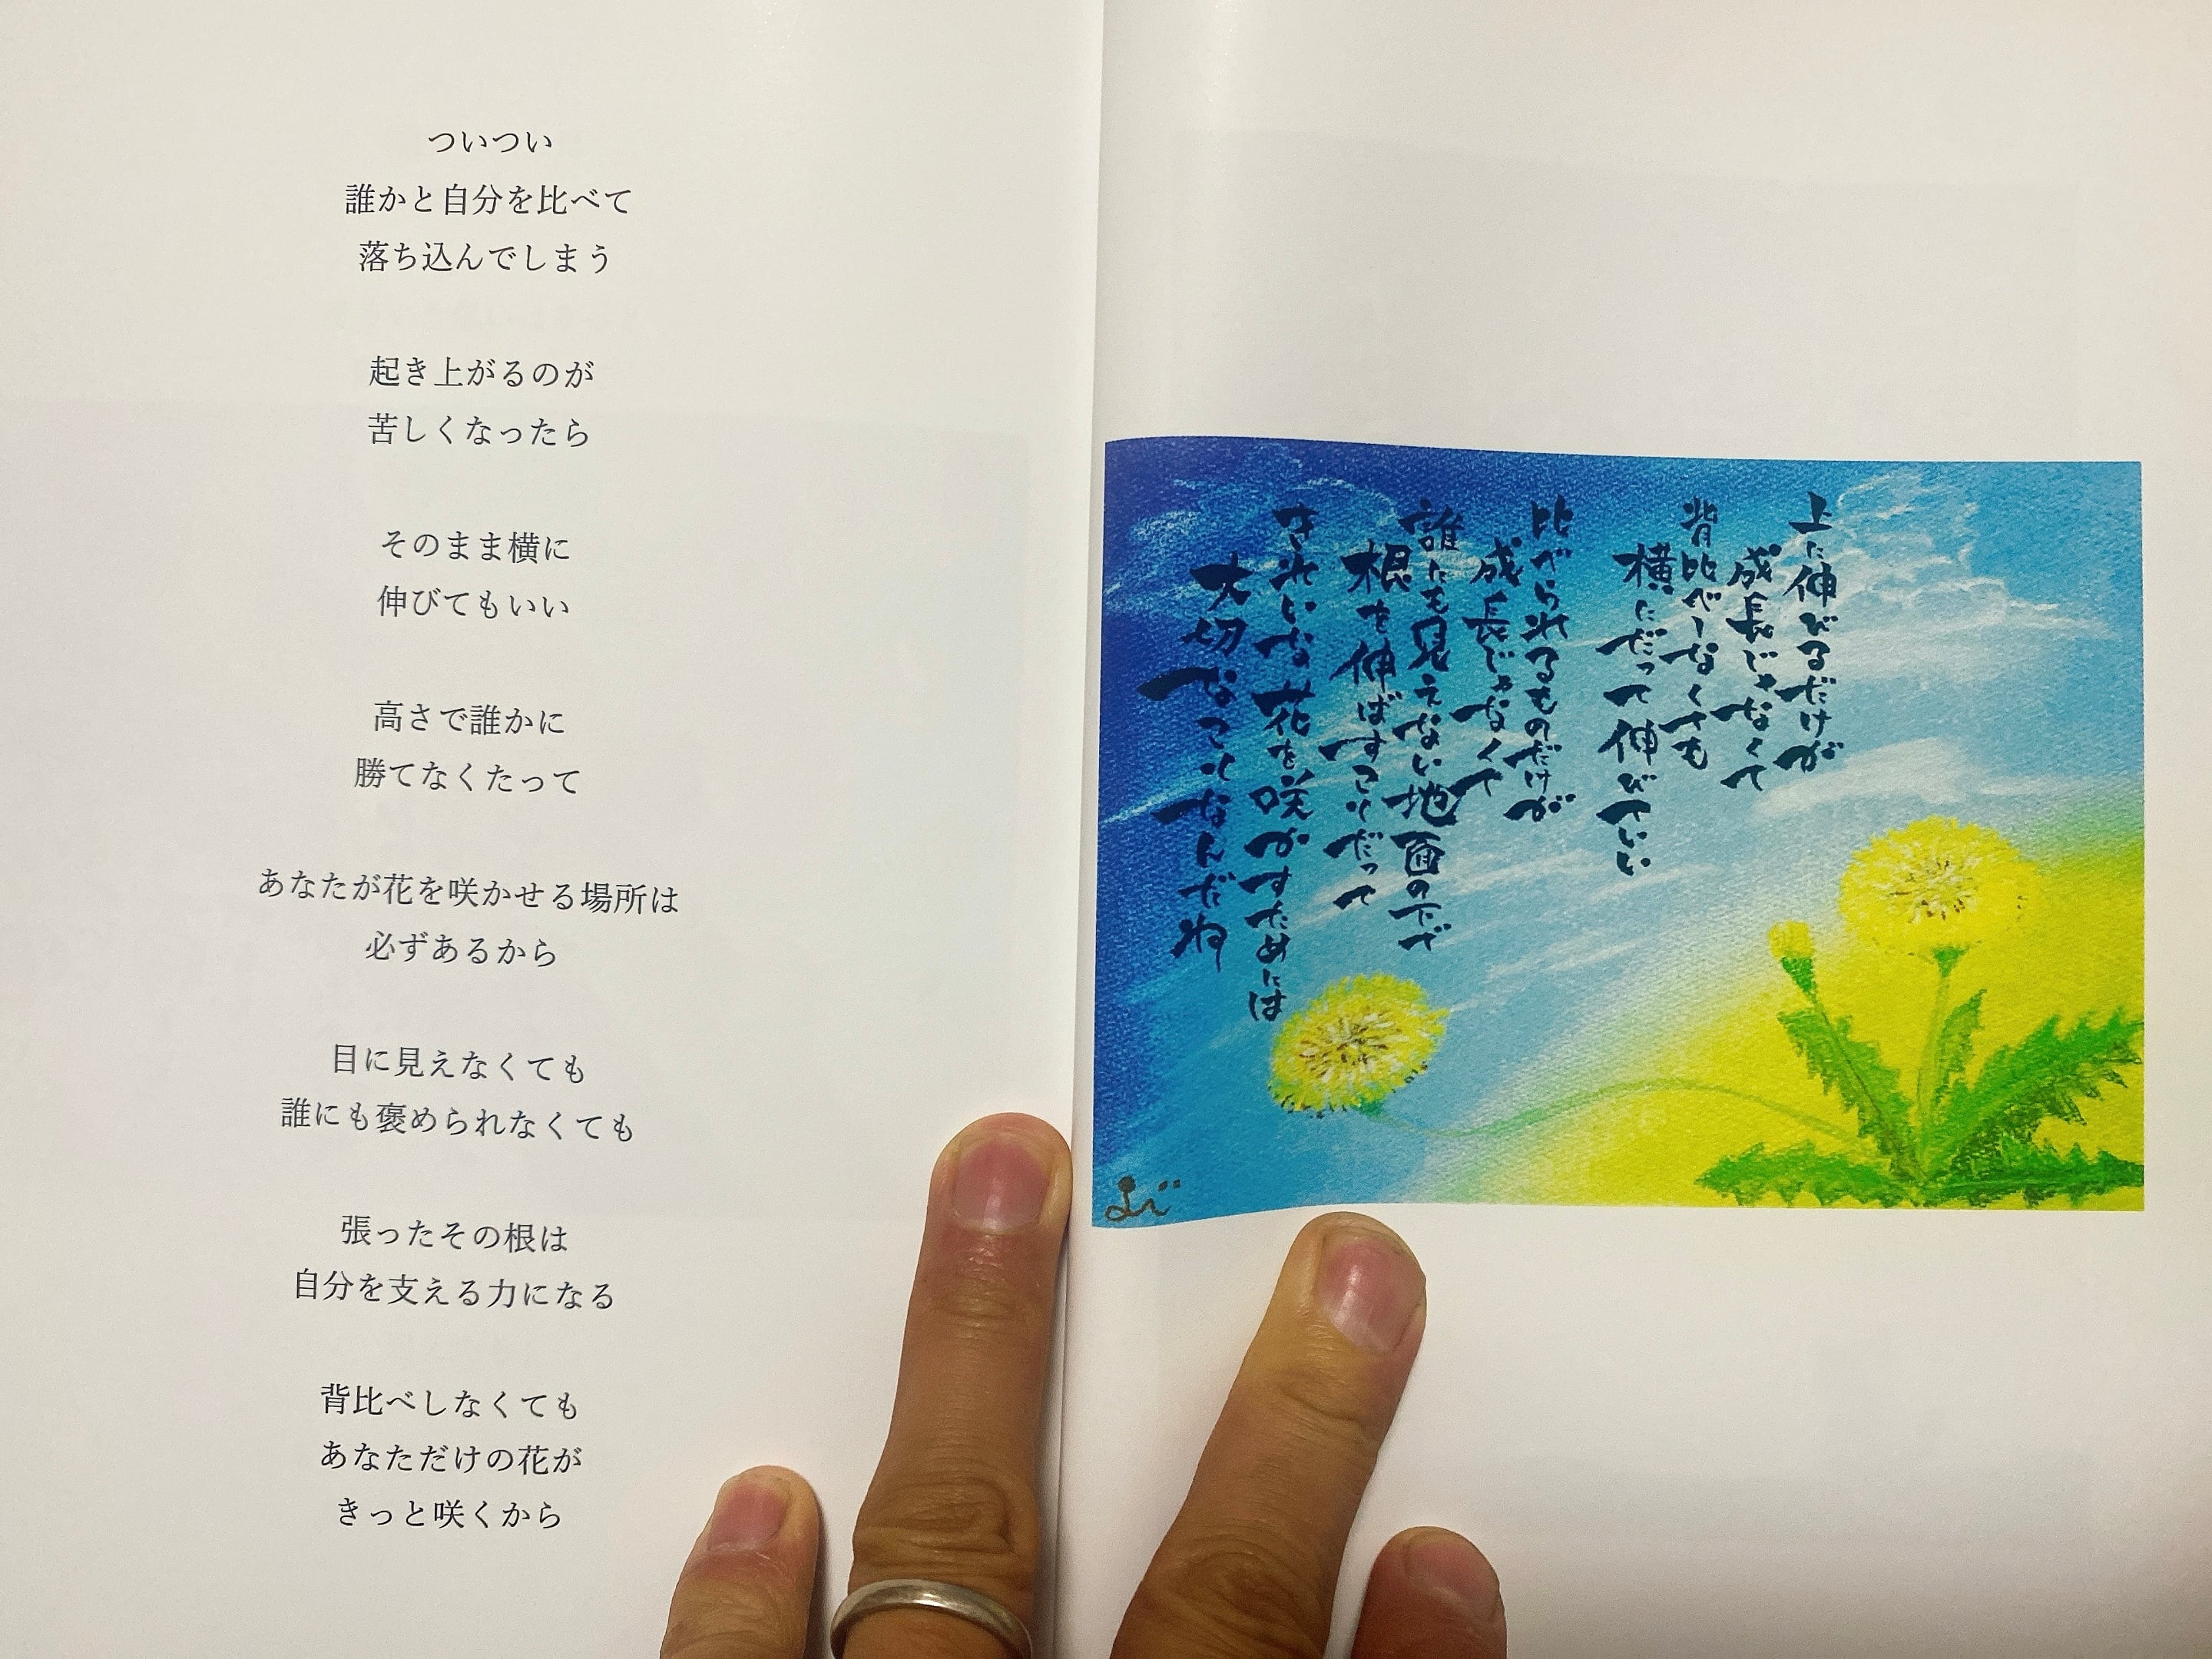 ついつい
誰かと自分を比べて
落ち込んでしまう
起き上がるのが
苦しくなったら
そのまま横に
伸びてもいい
高さで誰かに
勝てなくたって
あなたが花を咲かせる場所は
必ずあるから
目に見えなくても
誰にも褒められなくても
張ったその根は
自分を支える力になる
背比べしなくても
あなただけの花が
きっと咲くから
上に伸びるだけが
成長じゃなくて
背比べしなくても
横にだって伸びていい
比べられるものだけが
成長じゃなくて
誰にも見えない地面の下で
根を伸ばすことだって
きれいな花を咲かすためには
大切なことなんだね